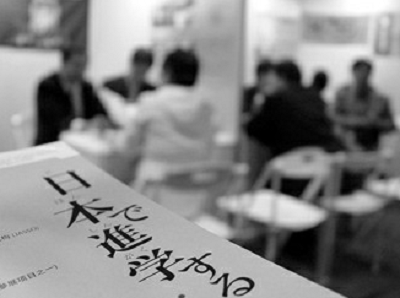 日本で進学する